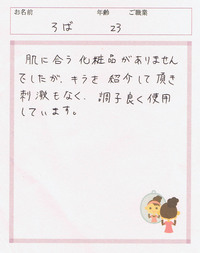 お名前 年齢 ご職業
ろぱ 23
肌に合う化粧品がありません
でしたが、キラを紹介して頂き
刺激もなく、調子良く使用
しています。